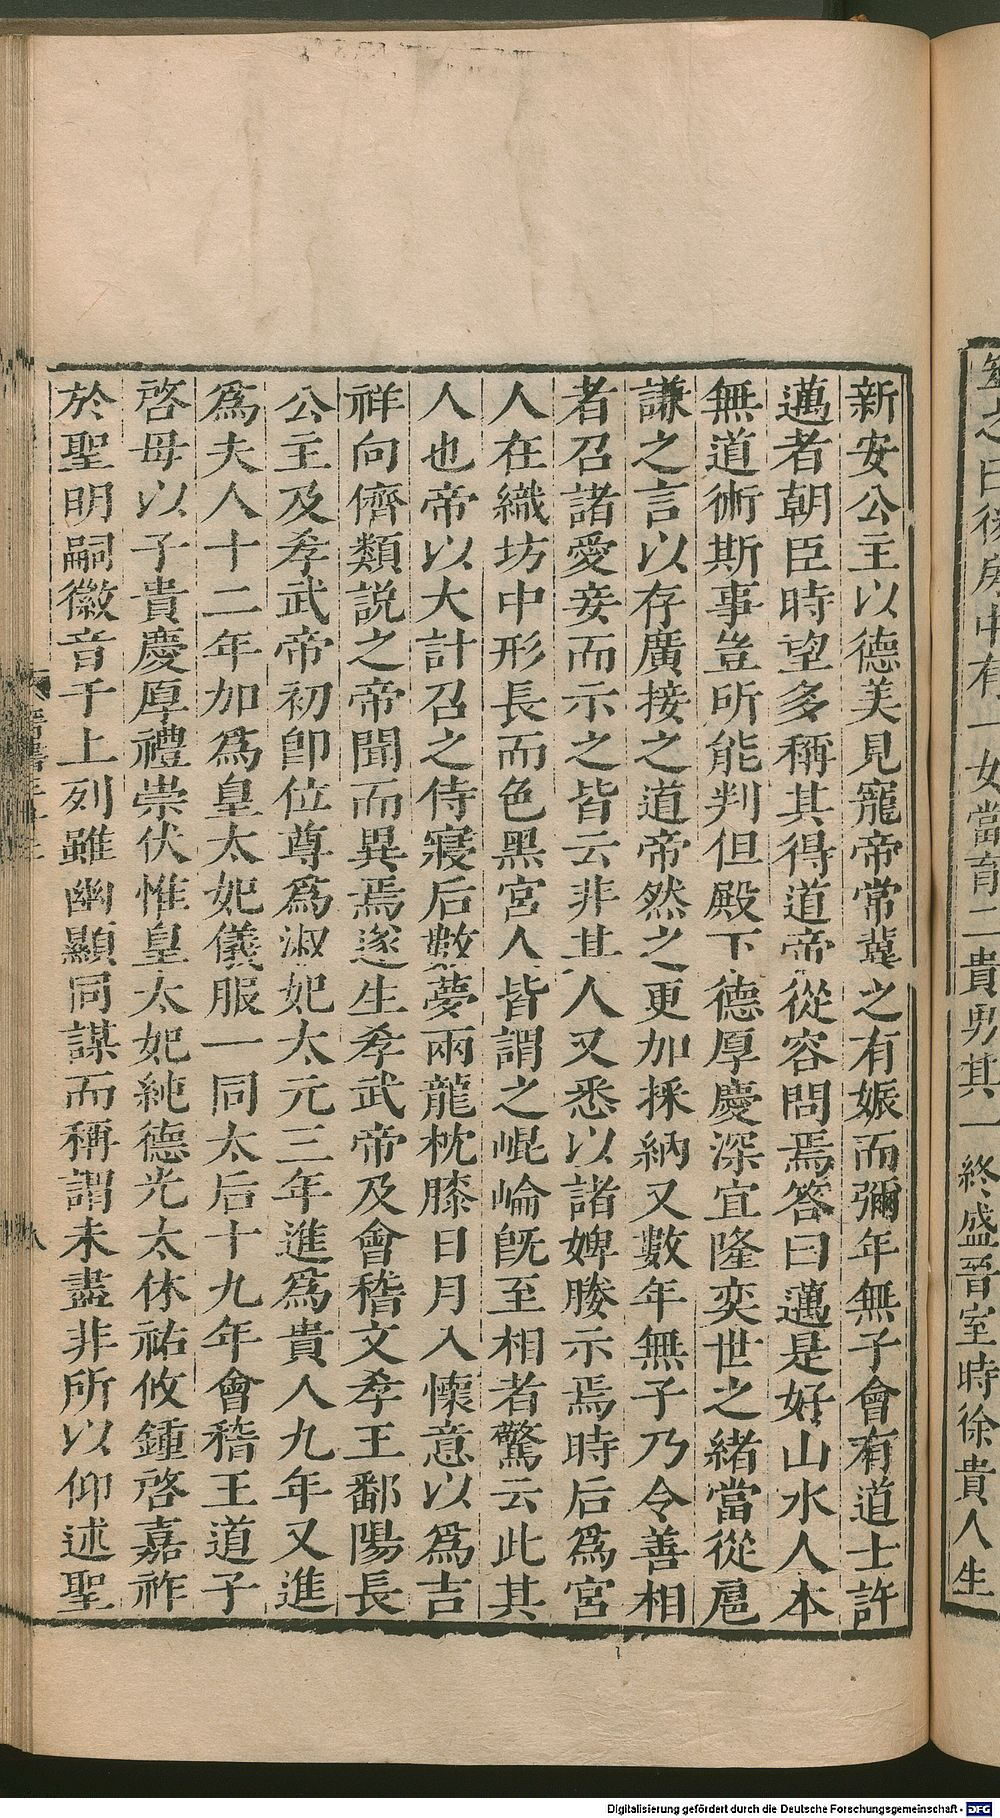 筮之曰後房中有一女當育二貴男其一終盛晉室時徐貴人生
新安公主以德美見寵帝常冀之有娠而彌年無子會有道士許
邁者朝臣時望多稱其得道帝從容問焉答曰邁是好山水人本
無道術斯事豈所能判但殿下德厚慶深宜隆奕世之緒當從扈
謙之言以存廣接之道帝然之更加採納又數年無子乃令善相
者召諸愛妾而示之皆云非其人又悉以諸婢媵示焉時后為宮
人在織坊中形長而色黑宮人皆謂之崐崘旣至相者驚云此其
人也帝以大計召之侍寢后數夢兩龍枕膝日月入懷意以為吉
祥向儕類說之帝聞而異焉遂生孝武帝及會稽文孝王鄱陽長
公主及孝武帝初卽位尊為淑妃太元三年進為貴人九年又進
為夫人十二年加為皇太妃儀服一同太后十九年會稽王道子
啓母以子貴慶厚禮崇伏惟皇太妃純德光太休祐攸鍾啓嘉祚
於聖明嗣徽音于上列雖幽顯同謀而稱謂未盡非所以仰述聖
八
Digitalisierung gefördert durch die Deutsche Forschungsgemeinschaft - DFG